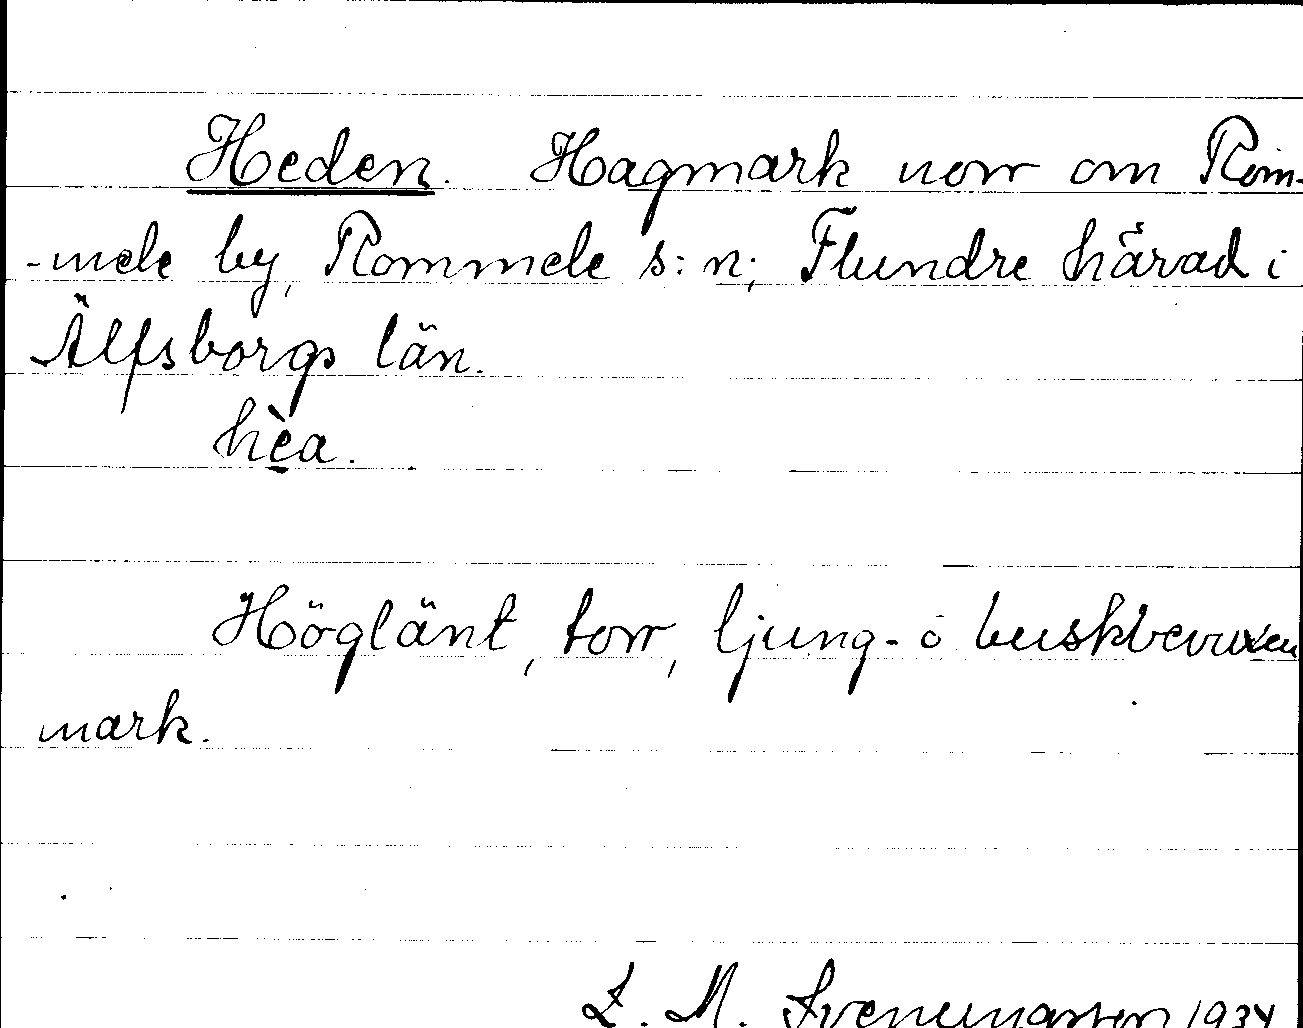 Heden. Hagmark norr om Rom-
-mele by, Rommele s:n; Flundre härad i
Älfsborgs län.
hèa.
Höglänt, torr, ljung- o buskbevuxen
mark.
L. M. 1934